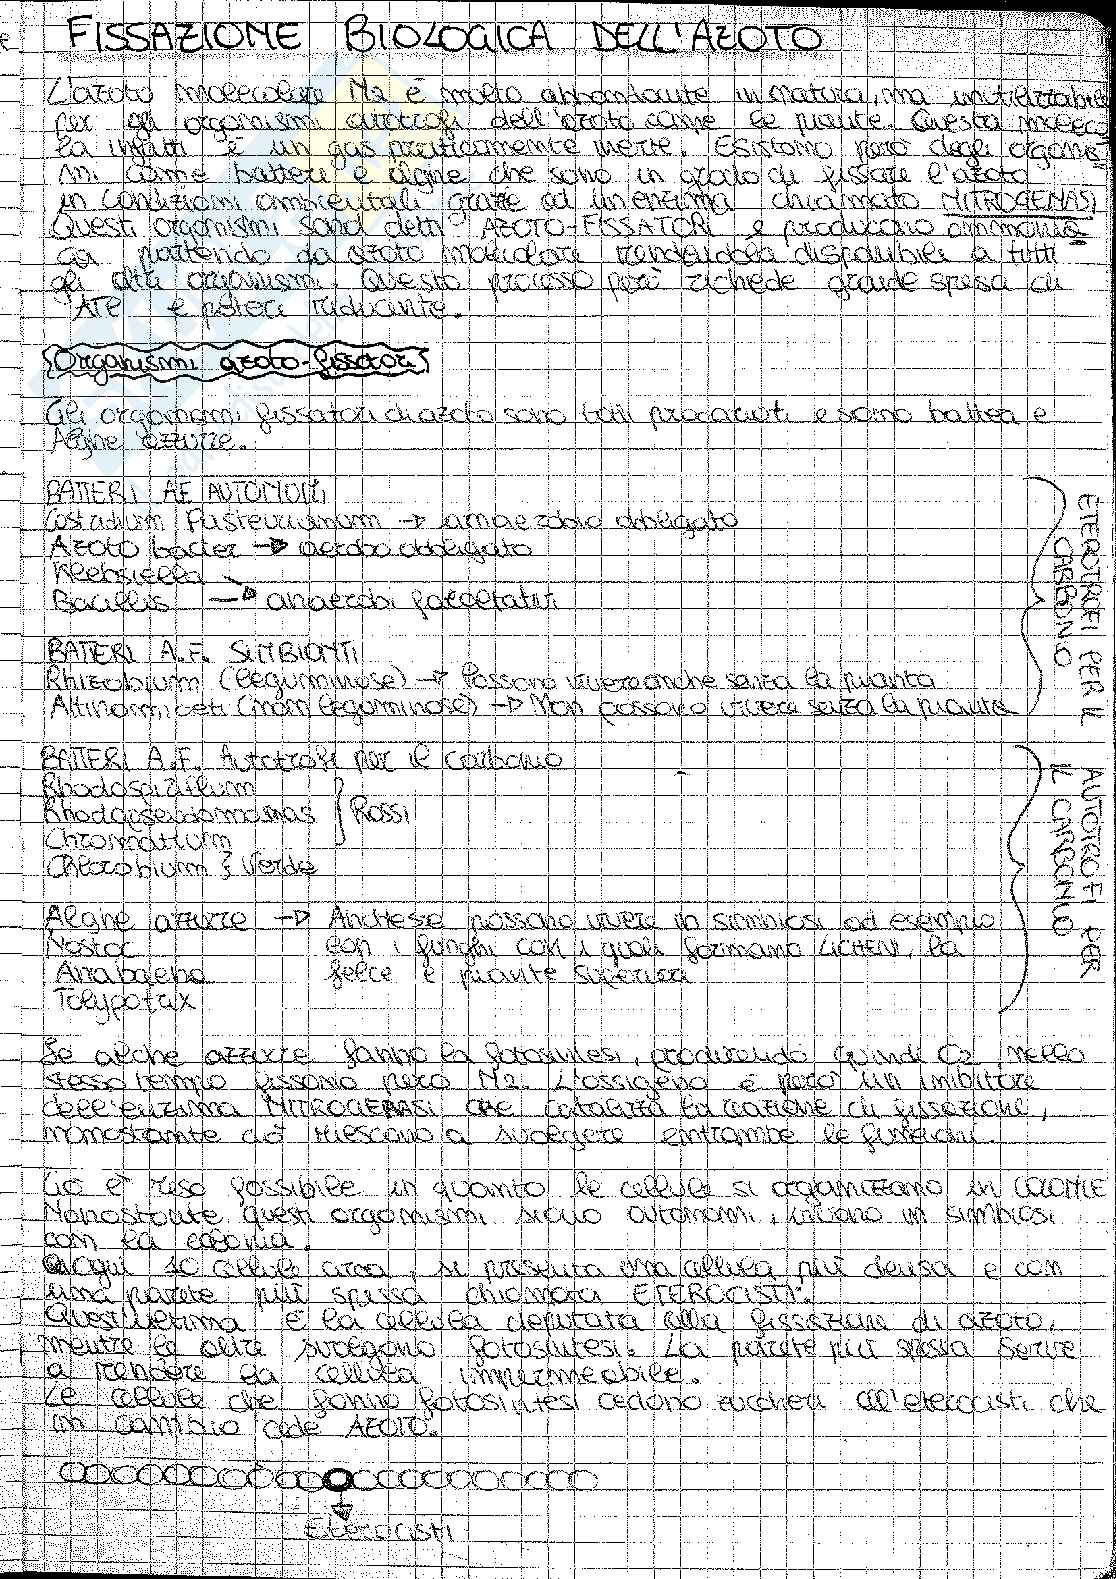 FISSAZIONE BIOLOGICA DELL'AZOTO
L'azoto molecolare N2 è molto abbondante in natura, ma inutilizzabile
per gli organismi autotrofi dell'azoto come le piante. Questa moleco
la infatti è un gas praticamente inerte. Esistono però degli organis
mi come batteri e alghe che sono in grado di fissare l'azoto
in condizioni ambientali grazie ad un enzima chiamato NITROGENASI
Questi organismi sono detti AZOTO-FISSATORI e producono ammonia
ca partendo da azoto molecolare rendendola disponibile a tutti
gli altri organismi. Questo processo però richiede grande spesa di
ATP e potere riducente.
Organismi azoto-fissatori
Gli organismi fissatori di azoto sono tutti procarioti e sono batteri e
Alghe azzurre.
BATTERI AF AUTONOMI
Costridium Pasteurianum → anaerobio obbligato
Azoto bacter → aerobio obbligato
Klebsiella
Bacillis → anaerobi facoltativi
ETEROTROFI PER IL
CARBONIO
BATTERI A.F. SIMBIONTI
Rhizobium (leguminose) → Possono vivere anche senza la pianta
Attinomiceti (non leguminose) → Non possono vivere senza la pianta
BATTERI A.F. Autotrofi per il carbonio
Rhodospirillum
Rhodopseudomonas } Rossi
Chromatium
Chlorobium } Verde
AUTOTROFI PER
IL CARBONIO
Alghe azzurre → Anch'esse possono vivere in simbiosi ad esempio
Nostoc con i funghi con i quali formano LICHENI, la
Anabaena felce e piante superiori
Tolypotrix
Le alghe azzurre fanno la fotosintesi, producendo quindi O2, nello
stesso tempo fissano però N2. L'ossigeno è però un inibitore
dell'enzima NITROGENASI che catalizza la reazione di fissazione,
nonostante ciò riescono a svolgere entrambe le funzioni.
Ciò è reso possibile in quanto le cellule si organizzano in COLONIE
Nonostante questi organismi siano autonomi, vivono in simbiosi
con la colonia.
Ogni 10 cellule circa, si presenta una cellula più densa e con
una parete più spessa chiamata ETEROCISTI.
Quest'ultima è la cellula deputata alla fissazione di azoto,
mentre le altre svolgono fotosintesi. La parete più spessa serve
a rendere la cellula impermeabile.
Le cellule che fanno fotosintesi cedono zuccheri all'eterocisti che
in cambio cede AZOTO.
Eterocisti